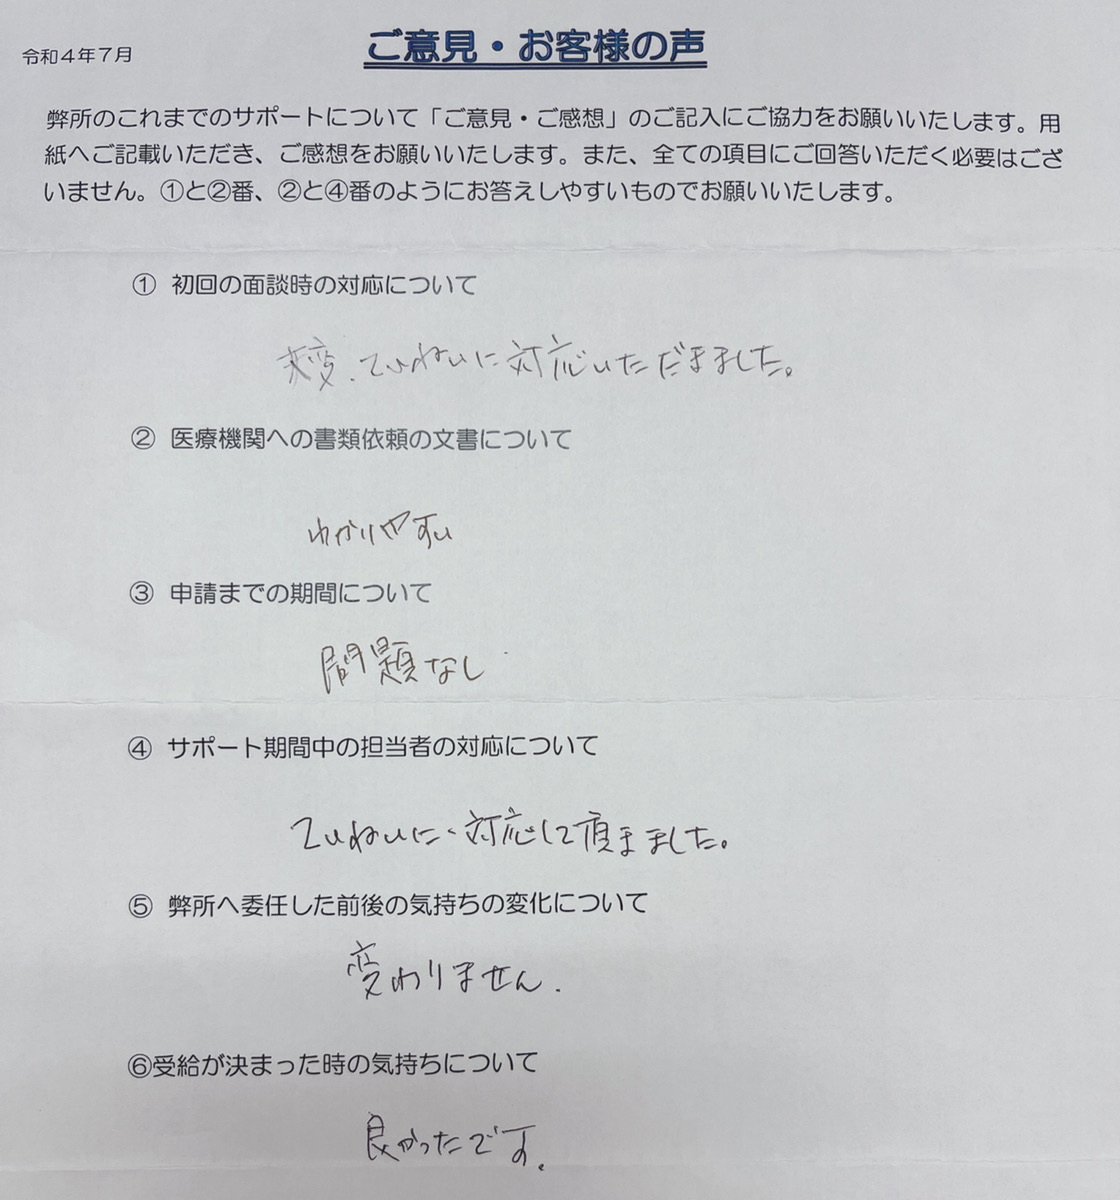 令和４年７月
ご意見・お客様の声
弊所のこれまでのサポートについて「ご意見・ご感想」のご記入にご協力をお願いいたします。用
紙へご記載いただき、ご感想をお願いいたします。また、全ての項目にご回答いただく必要はござ
いません。①と②番、②と④番のようにお答えしやすいものでお願いいたします。
① 初回の面談時の対応について
大変、ていねいに対応いただきました。
② 医療機関への書類依頼の文書について
わかりやすい
③ 申請までの期間について
問題なし
④ サポート期間中の担当者の対応について
ていねいに対応して頂きました。
⑤ 弊所へ委任した前後の気持ちの変化について
変わりません.
⑥受給が決まった時の気持ちについて
良かったです.